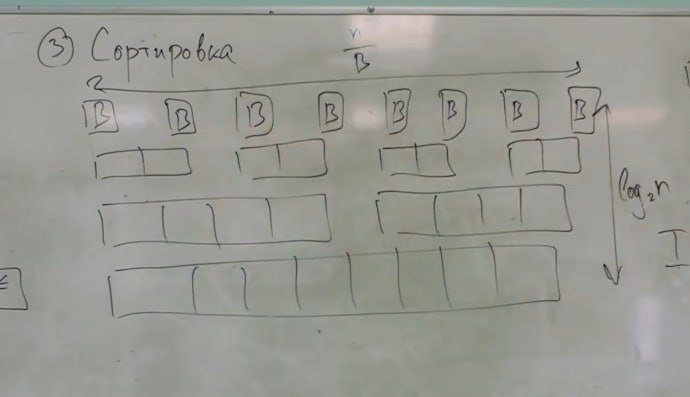 ③ Сортировка
n/B
B B B B B B B B
log₂n
I